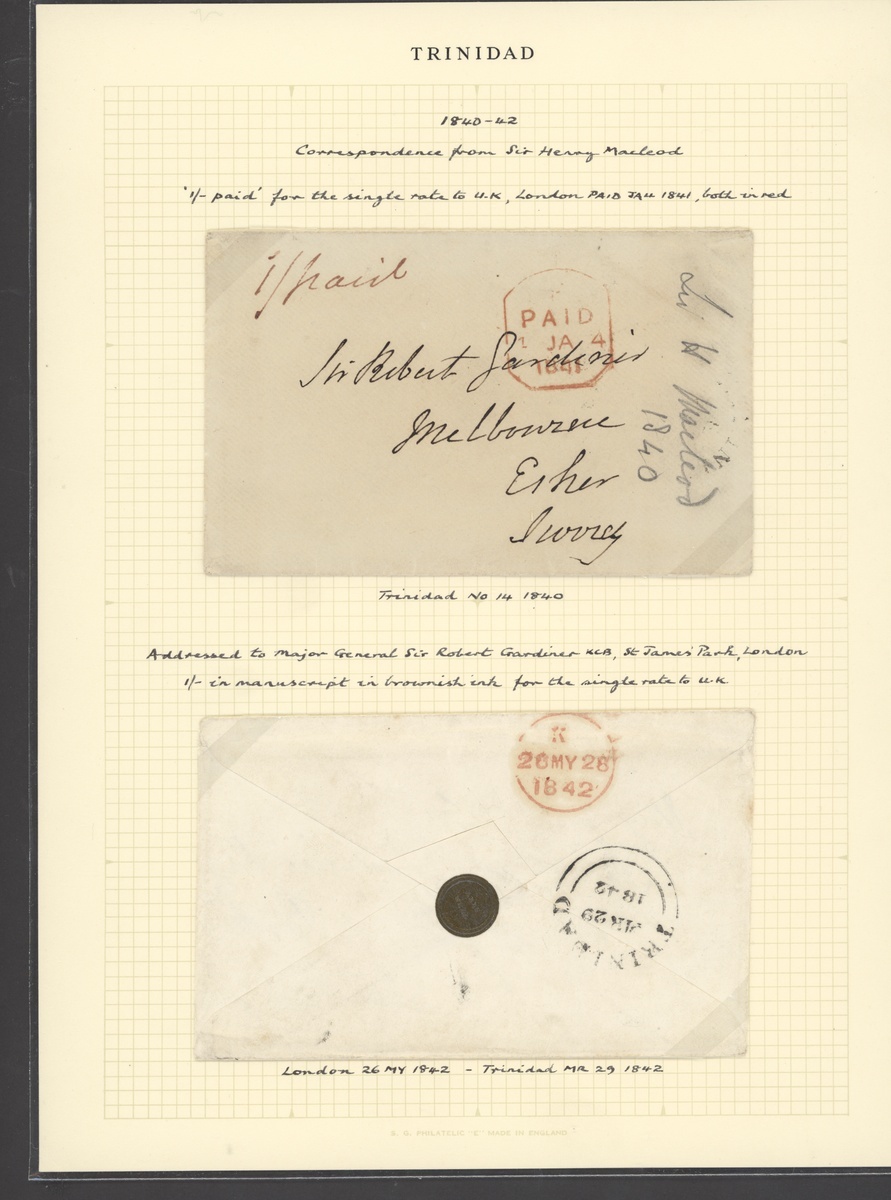 TRINIDAD
1840-42
Correspondence from Sir Henry Macleod
'1/- paid' for the single rate to U.K, London PAID JA4 1841, both in red
1/paid
PAID
1 JA 4
1841
Sir Robert Gardiner
Melbourne
Esher
Surrey
Sir H Macleod
1840
Trinidad No 14 1840
Addressed to Major General Sir Robert Gardiner KCB, St James' Park, London
1/- in manuscript in brownish ink for the single rate to U.K
K
26MY26
1842
TRINIDAD
MR29
1842
London 26 MY 1842 - Trinidad MR 29 1842
S. G. PHILATELIC "E" MADE IN ENGLAND